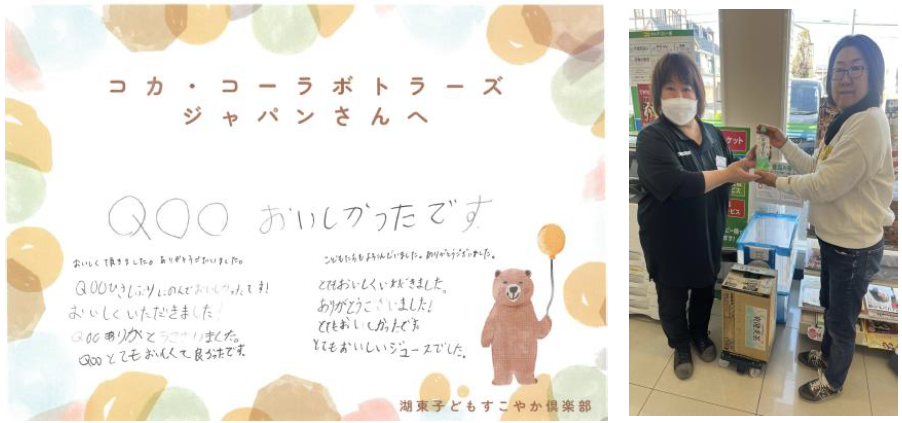 コカ・コーラボトラーズ
ジャパンさんへ
QOO おいしかったです
おいしく頂きました。ありがとうございました。
QOOひさしぶりにのんでおいしかったです!
おいしくいただきました!
QOOありがとうございました。
QOOとてもおいしくて良かったです。
こどもたちもよろこんでいました。ありがとうございました。
とてもおいしくいただきました。
ありがとうございました!
とてもおいしかったです。
とてもおいしいジュースでした。
湖東子どもすこやか倶楽部
ケット
ビス